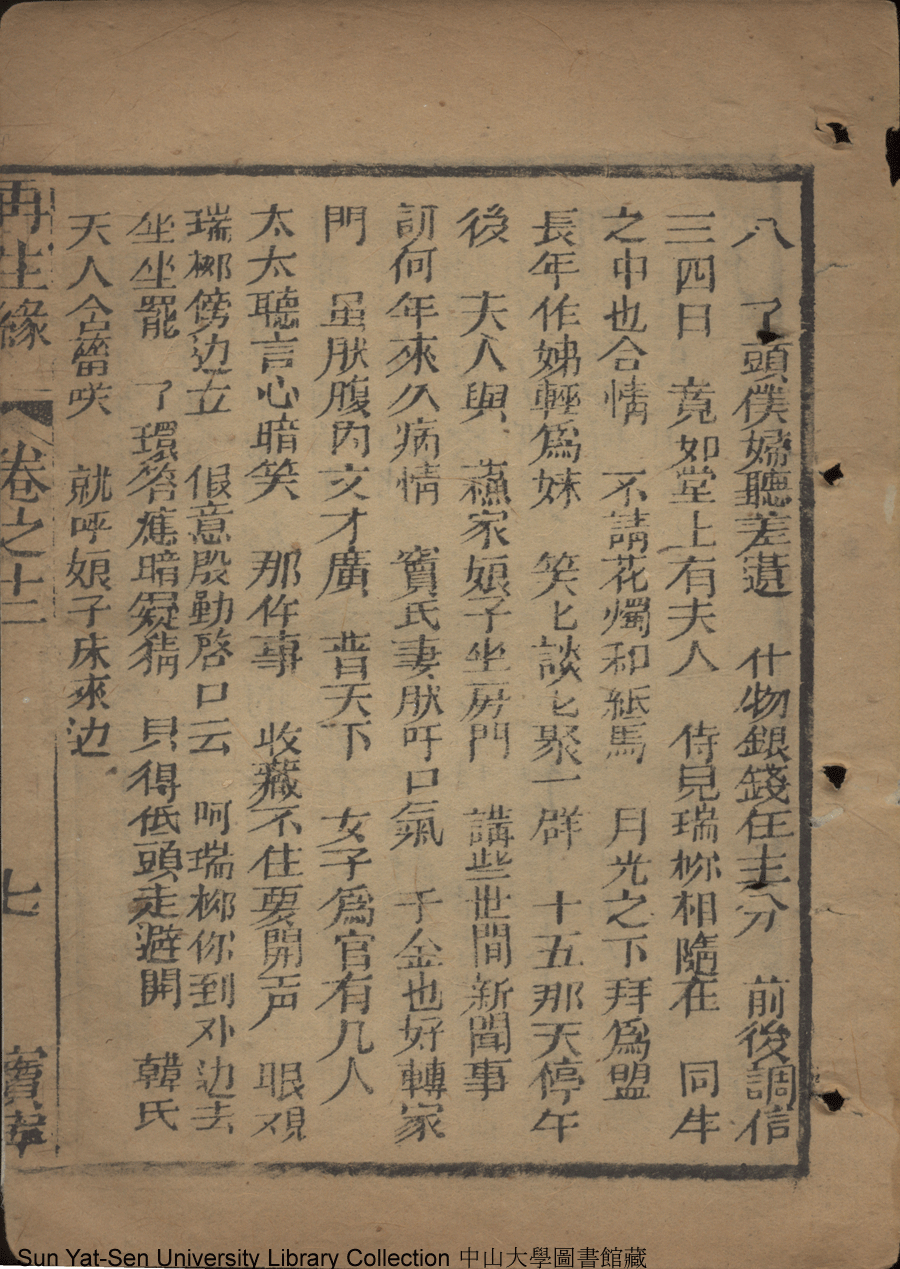 八 了頭僕婦聽差遣 什物銀錢任主分 前後調信
三四日 竟如堂上有夫人 侍見瑞柳相隨在 同牛
之中也合情 不請花燭和紙馬 月光之下拜爲盟
長年作娣輕爲妹 笑匕談匕聚一群 十五那天停午
後 夫人與 蘓家娘子坐房門 講些世間新聞事
訒何年來久病情 竇氏妻肰吁口氣 千金也好轉家
門 虽肰腹内文才廣 普天下 女子爲官有几人
太太聽言心暗笑 那件事 收藏不住要開声 眼覌
瑞柳傍边立 假意殷勤啓口云 呵瑞柳你到外边去
坐坐罷 了環答應暗疑猜 只得低頭走避開 韓氏
天人含笑 就呼娘子床來边
再生緣 卷之十二 七
Sun Yat-Sen University Library Collection 中山大學圖書館藏